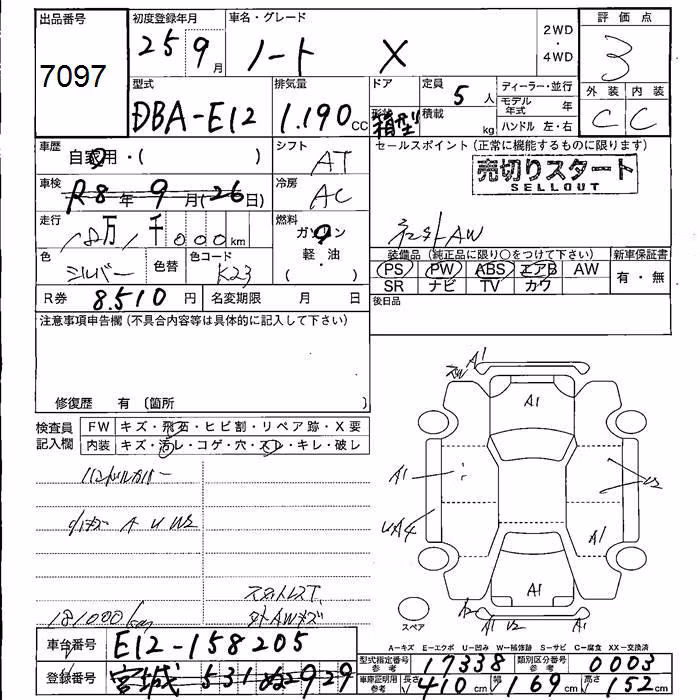 出品番号 初度登録年月 車名・グレード 評価点
7097 25 9月 ノート X 2WD・4WD 3
型式 排気量 ドア 定員 ディーラー・並行 外装 内装
DBA-E12 1.190cc 形状 箱型 積載 kg 5人 モデル年式 年 C C
ハンドル 左・右
車歴 自家用・( ) シフト AT セールスポイント(正常に機能するものに限ります)
売切りスタート
SELLOUT
車検 R8年9月(26日) 冷房 AC
走行 18万1千000km 燃料 ガソリン 社外AW
軽・油
( )
色 シルバー 色替 色コード K23 装備品(純正品に限り○をつけて下さい) 新車保証書
PS PW ABS エアB AW 有・無
SR ナビ TV カワ
R券 8.510円 名変期限 月 日 後日品
注意事項申告欄(不具合内容等は具体的に記入して下さい)
修復歴 有(箇所 )
検査員記入欄 FW キズ・飛石・ヒビ割・リペア跡・X要
内装 キズ・汚レ・コゲ・穴・スレ・キレ・破レ
ハンドルカバー
A U W2
181000km
スタットレスT
外AWキズ
A1
A1
A1
A1
UA4
U2
A1
A1
A1 U2
スペア
A-キズ E-エクボ U-凹み W-補修跡 S-サビ C-腐食 XX-交換済
車台番号 E12-158205
型式指定番号 参考 17338 類別区分番号 参考 0003
登録番号 宮城 531 ぬ2929
車庫証明用 参考 長さ 410cm 幅 169cm 高さ 152cm